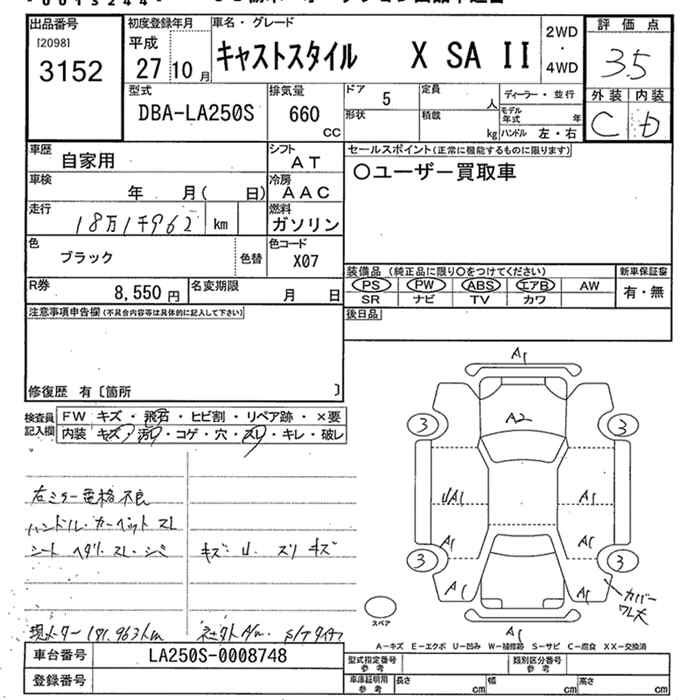 出品番号
[2098]
3152
初度登録年月
平成
27 10月
車名・グレード
キャストスタイル X SA II
2WD
・
4WD
評価点
3.5
外装 内装
C D
型式
DBA-LA250S
排気量
660
CC
ドア
5
形状
定員
人
積載
kg
ディーラー・並行
モデル年式 年
ハンドル 左・右
車歴
自家用
シフト
AT
車検
年 月( 日)
冷房
AAC
走行
18万1千962 km
燃料
ガソリン
色
ブラック
色替
色コード
X07
R券
8,550円
名変期限
月 日
セールスポイント(正常に機能するものに限ります)
〇ユーザー買取車
装備品(純正品に限り〇をつけてください)
PS PW ABS エアB AW
SR ナビ TV カワ
新車保証書
有・無
後日品
注意事項申告欄(不具合内容等は具体的に記入して下さい)
修復歴 有〔箇所 〕
検査員記入欄
FW キズ・飛石・ヒビ割・リペア跡・×要
内装 キズ・汚れ・コゲ・穴・スレ・キレ・破レ
右ミラー電格不良
ハンドル・カーペット スレ
シート ヘタリ・スレ・シミ
キズ・U スリキズ
現メーター 181,963km
A1
A2
3 3
UA1 A1
A1 A1
3 3
A1 A1
カバー
ワレ大
A1
スペア
A-キズ E-エクボ U-凹み W-補修跡 S-サビ C-腐食 XX-交換済
車台番号
LA250S-0008748
登録番号
型式指定番号 参考
類別区分番号 参考
車庫証明用 参考
長さ cm 幅 cm 高さ cm